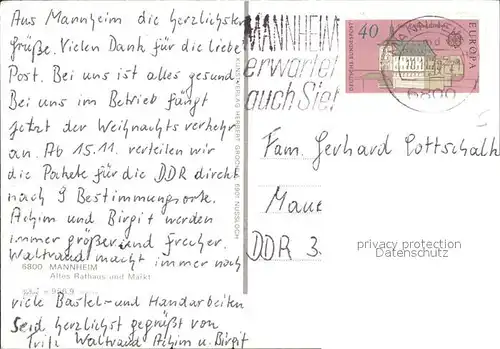 Aus Mannheim die herzlichsten
Grüße. Vielen Dank für die liebe
Post. Bei uns ist alles gesund
Bei uns im Betrieb fängt
jetzt der Weihnachtsverkehr
an. Ab 15.11. verteilen wir
die Pakete für die DDR direkt
nach 9 Bestimmungsorte.
Achim und Birgit werden
immer größer und frecher.
Waltraud macht immer noch
6800 MANNHEIM
Altes Rathaus und Markt
viele Bastel- und Handarbeiten
Seid herzlichst gegrüßt von
Fritz Waltraud Achim u. Birgit
KUNSTVERLAG HERBERT 6901 NUSSLOCH
MANNHEIM
erwartet
auch Sie!
40
DEUTSCHE BUNDESPOST
EUROPA
MANNHEIM
6800
Fam. Gerhard Gottschalk
DDR 3
privacy protection
Datenschutz